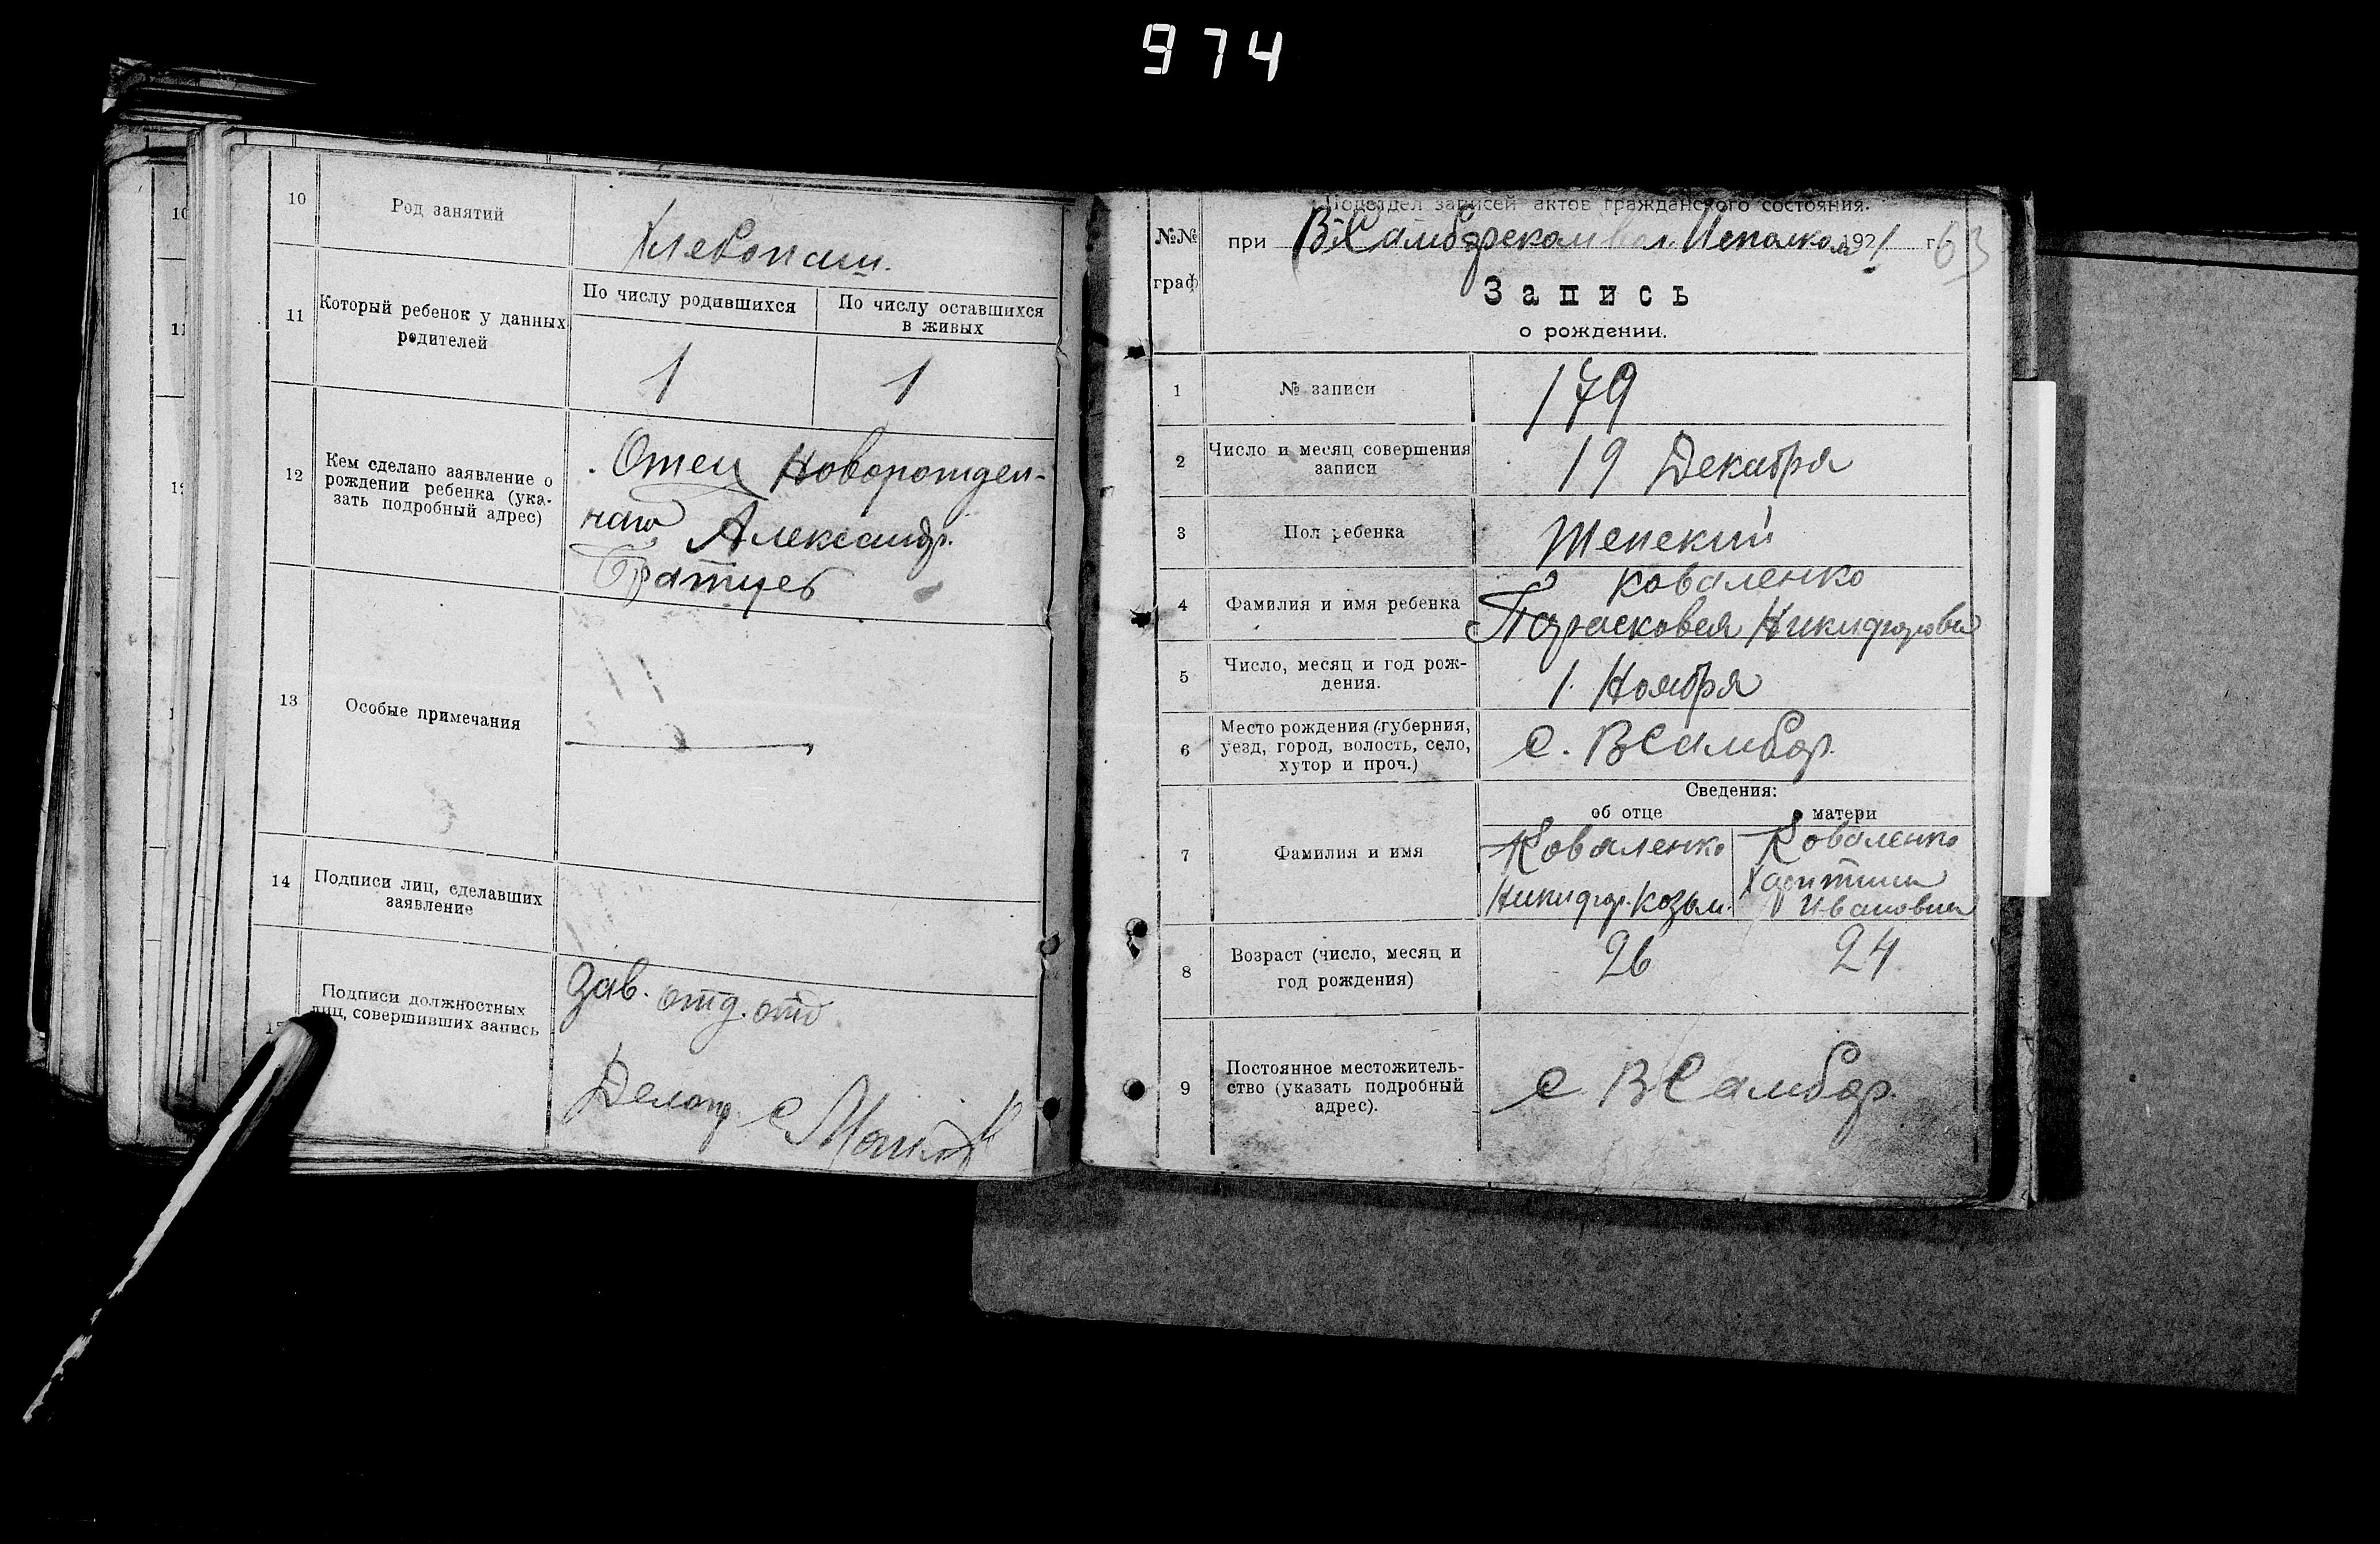 974
10 Род занятий Хлебопаш.
11 Который ребенок у данных родителей
По числу родившихся По числу оставшихся в живых
1 1
12 Кем сделано заявление о
рождении ребенка (ука-
зать подробный адрес)
Отец новорожден-
наго Александр.
Братцев
13 Особые примечания
14 Подписи лиц, сделавших
заявление
Подписи должностных
лиц, совершивших запись
Зав. отд.
Делопр.
Подотдел записей актов гражданского состояния.
№№
граф
при В-Самборском вол. Исполком 1921 г. 63
Запись
о рождении.
1 № записи 179
2 Число и месяц совершения
записи
19 Декабря
3 Пол ребенка Женский
4 Фамилия и имя ребенка
Коваленко
Парасковея Никифоровн
5 Число, месяц и год рож-
дения.
1. Ноября
6 Место рождения (губерния,
уезд, город, волость, село,
хутор и проч.)
с. ВСамбор.
Сведения:
об отце о матери
7 Фамилия и имя
Коваленко
Никифор. Козьм.
Коваленко
Харитина
Ивановна
8 Возраст (число, месяц и
год рождения)
26 24
9 Постоянное местожитель-
ство (указать подробный
адрес).
с. ВСамбор.